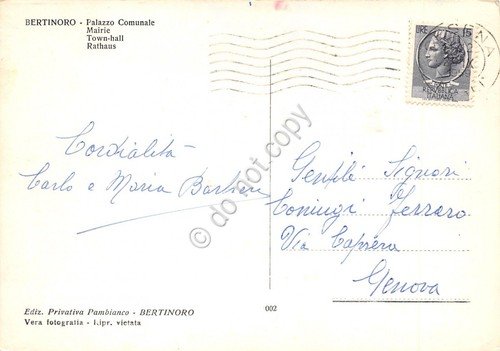 BERTINORO - Palazzo Comunale
Mairie
Town-hall
Rathaus
LIRE 15
REPVBBLICA
ITALIANA
Cordialità
Carlo e Maria Barbieri
Gentili Signori
Coniugi Ferraro
Via Caprera
Genova
© do not copy
Ediz. Privativa Pambianco - BERTINORO
Vera fotografia - Ripr. vietata
002